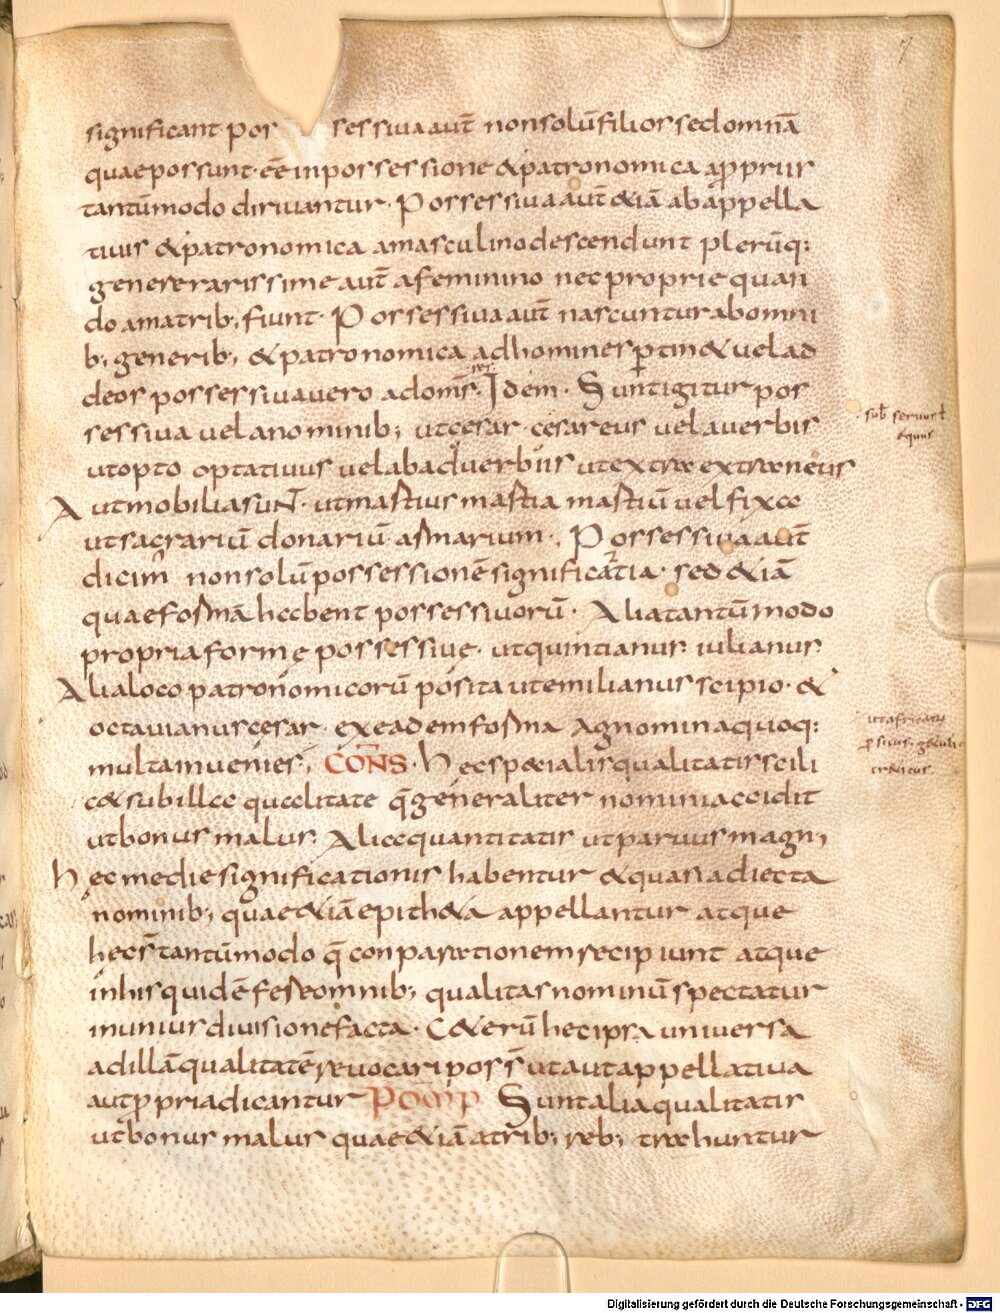 7
significant· pos sessiua aut̄ non solū filios sed omnā
quae possunt· eē in possessione & patronomica a ppriis
tantūmodo diriuantur· Possessiua aut̄ &iā ab appella
tiuis & patronomica a masculino descendunt plerūq:
genere rarissime aut̄ a feminino nec proprie quan
do a matrib; fiunt· Possessiua aut̄ nascuntur ab omni
b; generib; & patronomica ad homines ptin& uel ad
deos possessiua uero ad om̄s· Idem· Sunt igitur pos
sessiua uel a nominib; ut cesar· cesareus uel a uerbis
ut opto optatiuus uel ab aduerbiis ut extra extraneus
Aut mobilia sunt· ut mastius mastia mastiū uel fixa
ut sacrariū donariū armarium· Possessiua aut̄
dicim' non solū possessionē significātia· sed &iā
quae formā habent possessiuorū· Alia tantūmodo
propria formę possessiuę· ut quintianus iulianus
Alia loco patronomicorū posita ut emilianus scipio· &
octauianus cesar· ex eadem forma Agnomina quoq:
multa inuenies; CONS· Hec specialis qualitatis scili
c& sub illa qualitate q̄ generaliter nomini accidit
ut bonus malus· Alia quantitatis ut paruus magn;
Hec medie significationis habentur & quasi adiecta
nominib; quae &iā epith&a appellantur atque
hec s̄ tantūmodo q̄ conparationem recipiunt atque
in his quidē fere omnib; qualitas nominū spectatur
in unius diuisione facta· C&erū hec ipsa uniuersa
ad illā qualitatē reuocari poss̄ ut aut appellatiua
aut ppria dicantur POMP Sunt alia qualitatis
ut bonus malus quae &iā a trib; reb; trahuntur
sub seruus
equus
ut african;